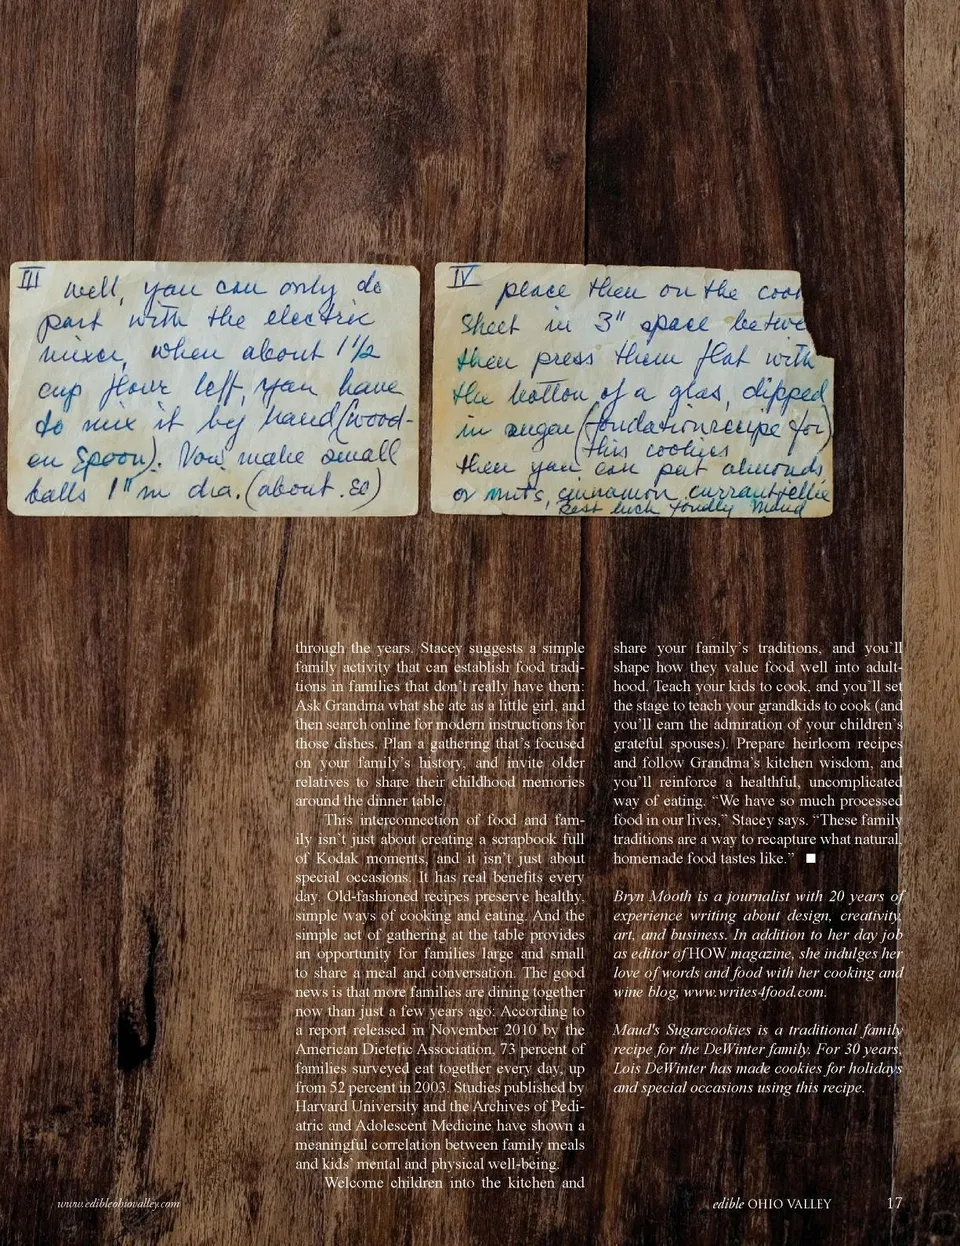 III
well, you can only do
part with the electric
mixer, when about 1 1/2
cup flour left, you have
to mix it by hand (wood-
en Spoon). Now make small
balls 1" in dia. (about .50)
IV
place then on the cook
sheet in 3" space betwe
then press them flat with
the bottom of a glas, dipped
in sugar (fondationrecipe for)
(this cookies
then you can put almonds
or nuts, cinnamon, currantjellie
Best luck fondly Maud
through the years. Stacey suggests a simple
family activity that can establish food tradi-
tions in families that don't really have them:
Ask Grandma what she ate as a little girl, and
then search online for modern instructions for
those dishes. Plan a gathering that's focused
on your family's history, and invite older
relatives to share their childhood memories
around the dinner table.
This interconnection of food and fam-
ily isn't just about creating a scrapbook full
of Kodak moments, and it isn't just about
special occasions. It has real benefits every
day. Old-fashioned recipes preserve healthy,
simple ways of cooking and eating. And the
simple act of gathering at the table provides
an opportunity for families large and small
to share a meal and conversation. The good
news is that more families are dining together
now than just a few years ago: According to
a report released in November 2010 by the
American Dietetic Association, 73 percent of
families surveyed eat together every day, up
from 52 percent in 2003. Studies published by
Harvard University and the Archives of Pedi-
atric and Adolescent Medicine have shown a
meaningful correlation between family meals
and kids' mental and physical well-being.
Welcome children into the kitchen and
share your family's traditions, and you'll
shape how they value food well into adult-
hood. Teach your kids to cook, and you'll set
the stage to teach your grandkids to cook (and
you'll earn the admiration of your children's
grateful spouses). Prepare heirloom recipes
and follow Grandma's kitchen wisdom, and
you'll reinforce a healthful, uncomplicated
way of eating. “We have so much processed
food in our lives,” Stacey says. “These family
traditions are a way to recapture what natural,
homemade food tastes like.” ■
Bryn Mooth is a journalist with 20 years of
experience writing about design, creativity,
art, and business. In addition to her day job
as editor of HOW magazine, she indulges her
love of words and food with her cooking and
wine blog, www.writes4food.com.
Maud's Sugarcookies is a traditional family
recipe for the DeWinter family. For 30 years,
Lois DeWinter has made cookies for holidays
and special occasions using this recipe.
www.edibleohiovalley.com
edible OHIO VALLEY 17